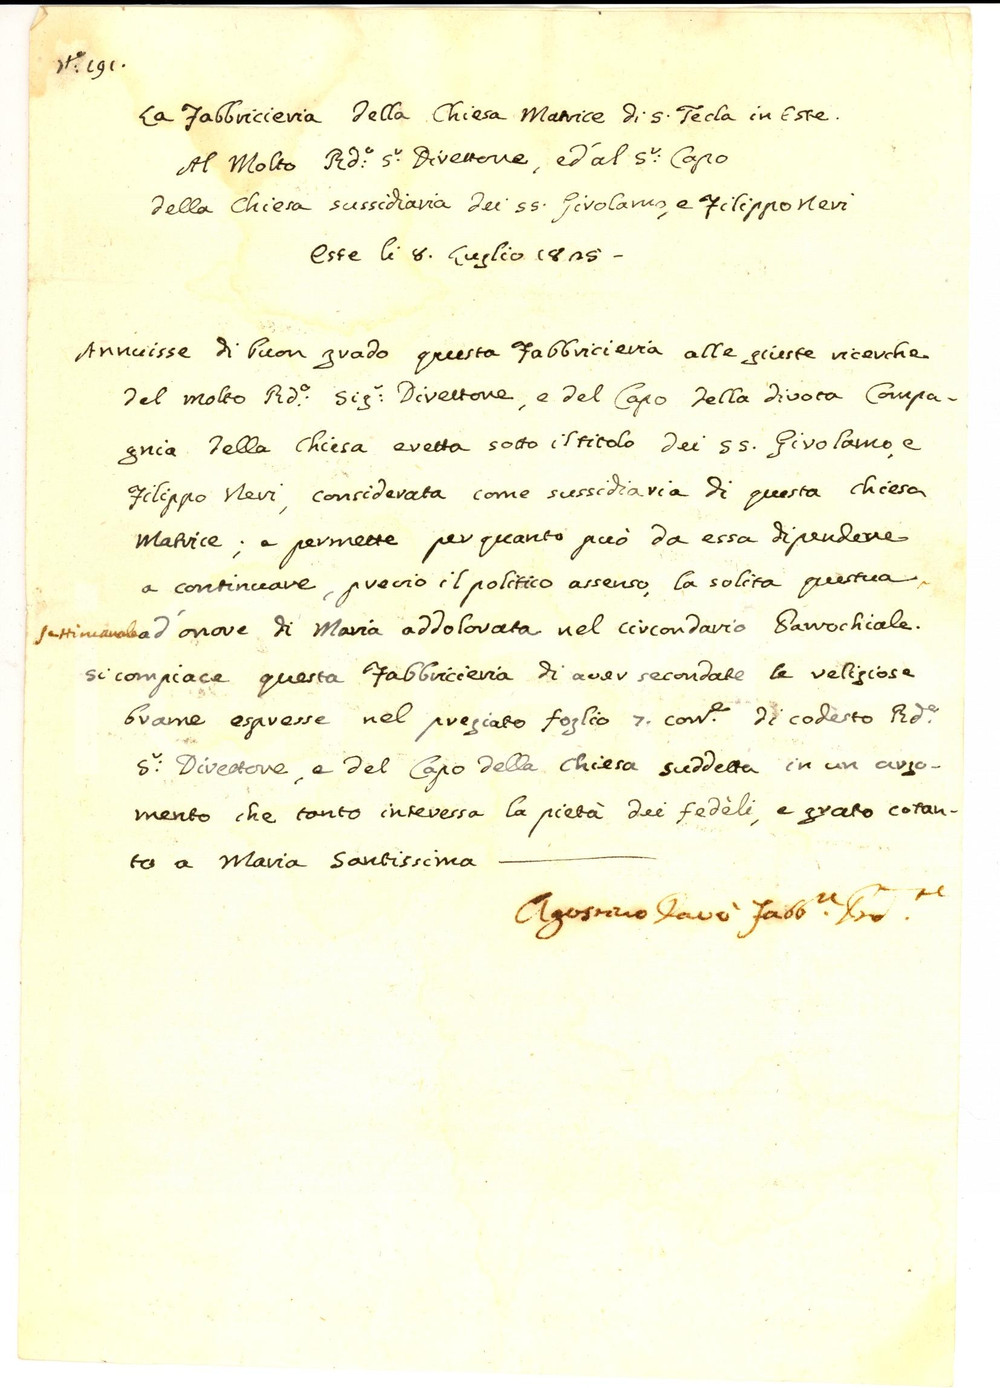 N.º 191.
La Fabbricieria della Chiesa Matrice di S. Tecla in Este.
Al Molto Rd.º S.r Direttore, ed al S.r Capo
della Chiesa sussidiaria dei SS. Girolamo, e Filippo Neri
Este li 8. Luglio 1825 -
Annuisse di buon grado questa Fabbricieria alle giuste ricerche
del molto Rd.º Sig.r Direttore, e del Capo della divota Compa-
gnia della Chiesa eretta sotto il titolo dei SS. Girolamo, e
Filippo Neri, considerata come sussidiaria di questa chiesa
Matrice; e permette per quanto può da essa dipendere
a continuare, previo il politico assenso, la solita questua
settimanale ad onore di Maria addolorata nel circondario Parrochiale.
Si compiace questa Fabbricieria di aver secondate le religiose
brame espresse nel pregiato foglio 7. corr.e di codesto Rd.º
S.r Direttore, e del Capo della Chiesa suddetta in un argo-
mento che tanto interessa la pietà dei fedèli, e grato cotan-
to a Maria Santissima
Agostino Fabb.re